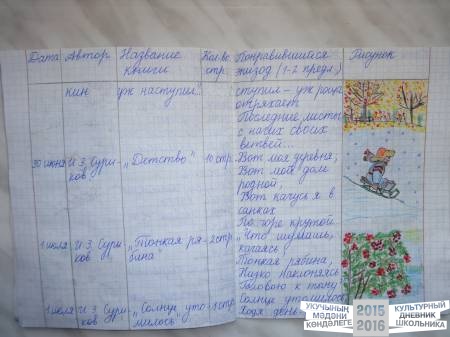 Дата Автор Название книги Кол-во стр. Понравившийся эпизод (1-2 предл.) Рисунок
кин уж наступил..." ступил - уж роща
отряхает
Последние листы
с нагих своих
ветвей...
30 июня И.З. Суриков „Детство" 10 стр. Вот моя деревня;
Вот мой дом
родной,
Вот качусь я в
санках
По горе крутой
1 июля И.З. Суриков „Тонкая рябина" 2 стр. „Что шумишь,
качаясь
Тонкая рябина,
Низко наклоняясь
Головою к тыну"
1 июля И.З. Суриков „Солнце утомилось" 1 стр. Солнце утомилось
Ходя день
УКУЧЫНЫҢ
МӘДӘНИ
КӨНДӘЛЕГЕ
2015
2016
КУЛЬТУРНЫЙ
ДНЕВНИК
ШКОЛЬНИКА